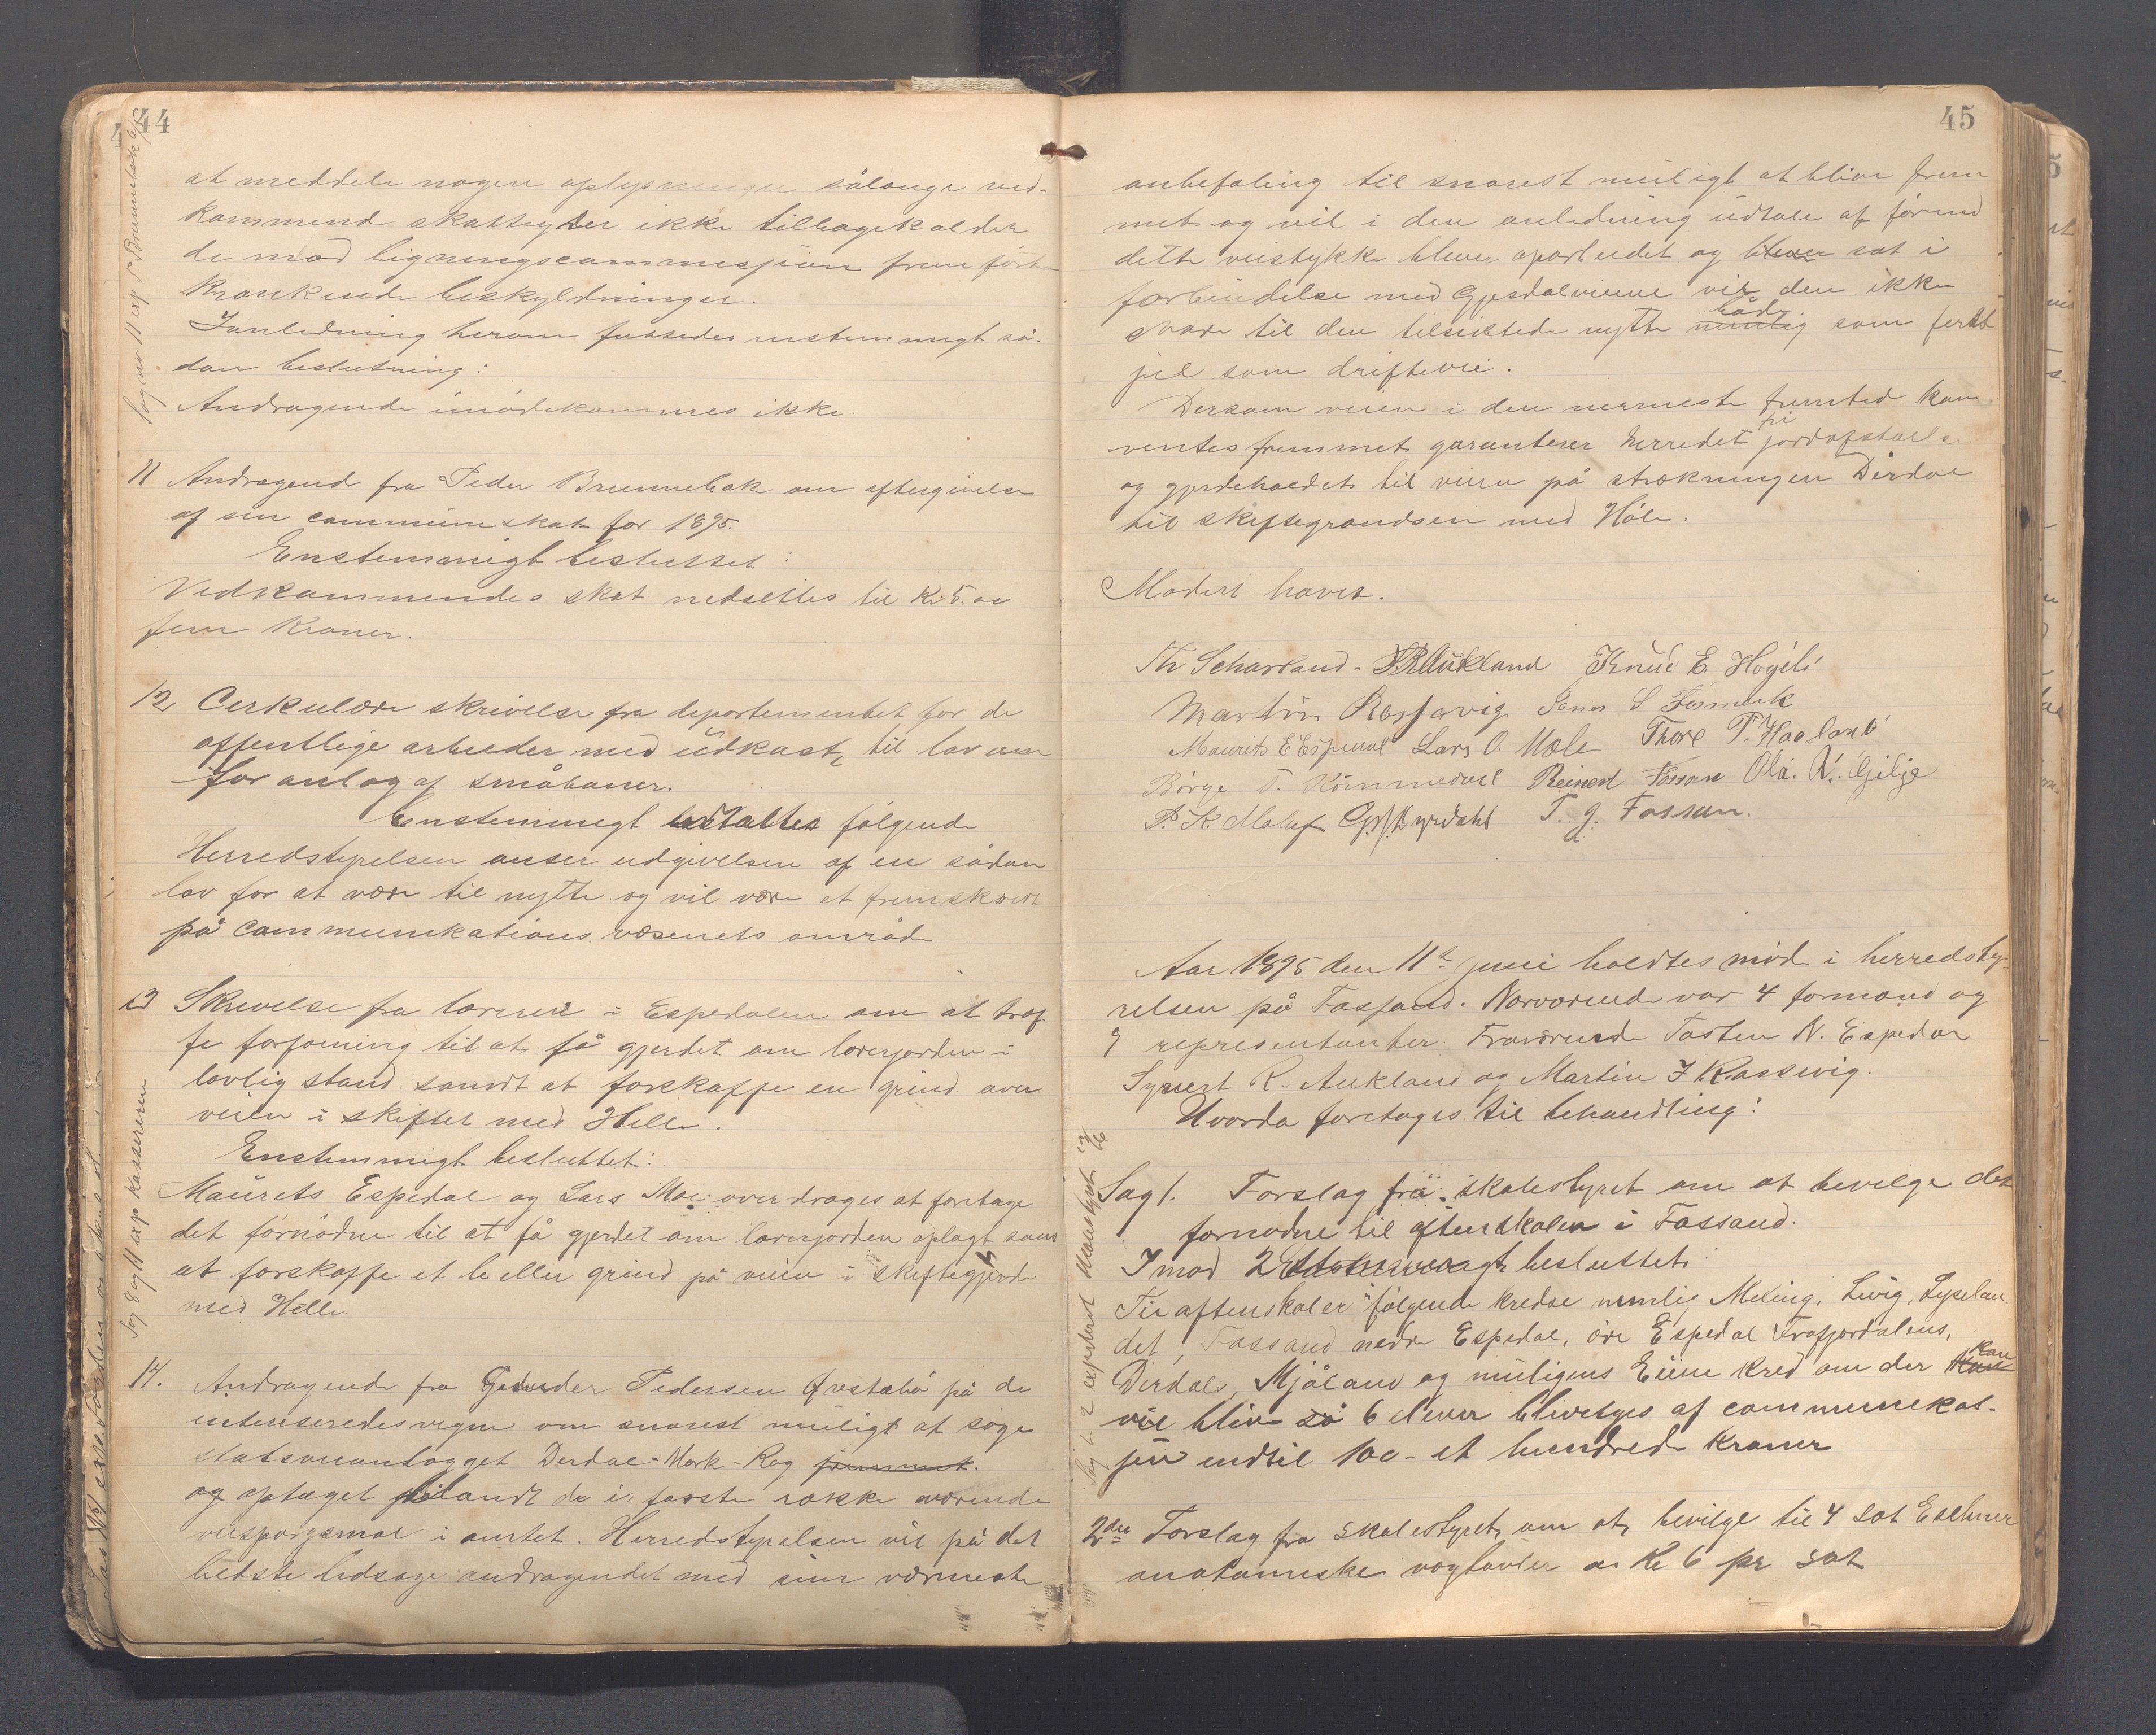 44
at meddele nogen oplysninger sålange ved-
kommend skatteyder ikke tilbagekalder
de mod ligningscommissjon fremførte
krænkende beskyldninger.
I anledning herom fattedes enstemmigt så-
dan beslutning:
Andragende imødekommes ikke.
11 Andragend fra Peder Brunnebak om eftergivelse
af sin communeskat for 1895.
Enstemmigt besluttet:
Vedkommendes skat nedsettes til Kr 5.00
fem Kroner.
12 Cerkulære skrivelse fra departementet for de
offentlige arbeider med udkast til lov om
for anlag af småbaner.
Enstemmigt følgende
Herredstyrelsen anser udgivelsen af en sådan
lov for at være til nytte og vil være et fremskridt
på communikations væsenets område
13 Skrivelse fra læreren i Espedalen om at træf-
fe forføining til at få gjerdet om lærerjorden i
lovlig stand samdt at forskaffe en grind over
veien i skiftet med Helle.
Enstemmigt besluttet:
Maurets Espedal og Lars Mæle overdrages at foretage
det fornødne til at få gjerdet om lærerjorden oplagt samt
at forskaffe et le eller grind på veien i skiftegjerde
med Helle.
14. Andragende fra Pedersen Øvstabø på de
interesseredes vegne om snarest muligt at søge
statsveianlægget Dirdal-Mork-Rag fremmet.
og optaget iblandt de i første række værende
veispørgsmål i amtet. Herredstyrelsen vil på det
bedste ledsage andragendet med sin varmeste
Sag 8 og 11 exp kassereren
45
anbefaling til snarest muligt at blive frem
met og vil i den anledning udtale at førend
dette veistykke bliver oparbeidet og bliver sat i
forbindelse med Gjesdalveiene vil den ikke
svare til den tilsiktede nytte nemlig både som færd
jel som driftevei.
Dersom veien i den nærmeste fremtid kan
ventes fremmet garanterer herredet fri jordafståelse
og gjerdeholdet til veien på strækningen Dirdal
til skiftegrændsen med Høle.
Mødet hævet.
Th Scharland. Aukland Knud E. Høgeli
Martin Rossavig S
Maurits E Espedal Lars O. Mæle Thore P. Haaland
Børge T. Kommedal Reinert Fossan Ola. N. Gilje
P. K. Maluf Dyrdahl T. J. Fossan.
Aar 1895 den 11te juni holdtes møde i herredsty-
relsen på Fossand. Nærværende var 4 formænd og
9 representanter. Fraværende Tosten N. Espedal
Syvert R. Aukland og Martin J Rossevig.
Hvorda foretoges til behandling:
Sag 1. Forslag fra skolestyret om at bevilge det
fornødne til aftenskolen i Fossand.
I mod 2 besluttet:
Til aftenskoler i følgende kredse nemlig Meling, Levig, Lyselan-
det, Fossand nedre Espedal, øvre Espedal Frafjordalens,
Dirdals, Mjåland og muligens Eiene kred om der kan
vil blive så 6 elever bliveges af communekas-
jen indtil 100 - et hundrede kroner
2den Forslag fra skolestyret om at bevilge til 4 sæt Eschner
anatomiske vægtavler a Kr 6 pr sæt
Sag 1-2 expedert skolestyret